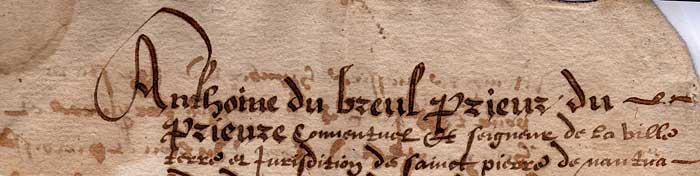 Anthoine du breul prieur du
prieure conventuel et seigneur de la ville
terre et Jurisdition de sainct pierre de nantua